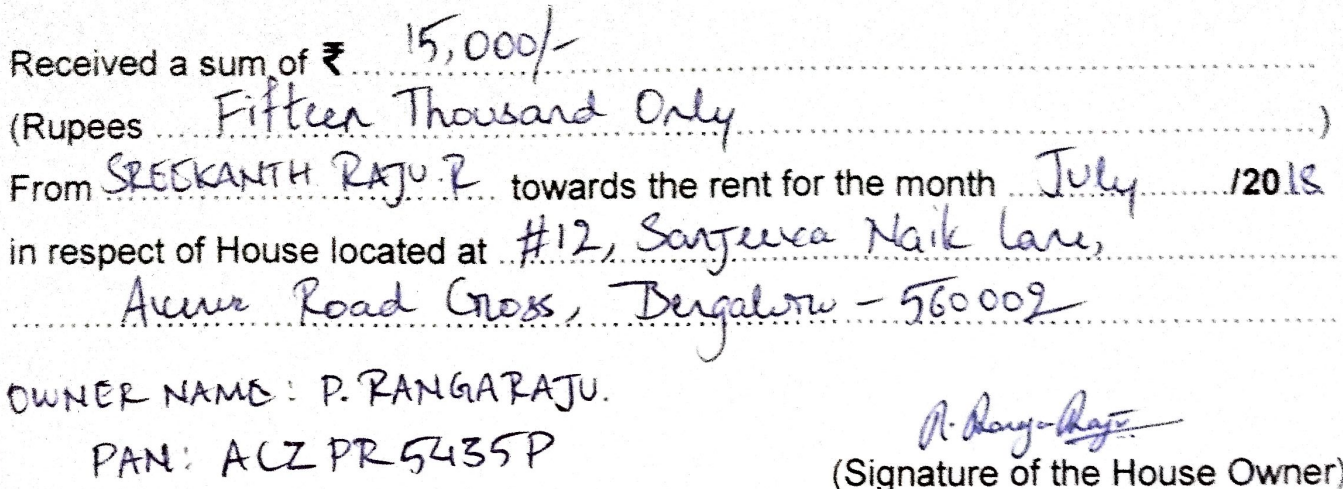 Received a sum of ₹ 15,000/-
(Rupees Fifteen Thousand Only )
From SREEKANTH RAJU.R towards the rent for the month July /2018
in respect of House located at #12, Sanjeeva Naik Lane,
Avenue Road Cross, Bengaluru - 560002
OWNER NAME: P. RANGARAJU.
PAN: ACZPR5435P
(Signature of the House Owner)